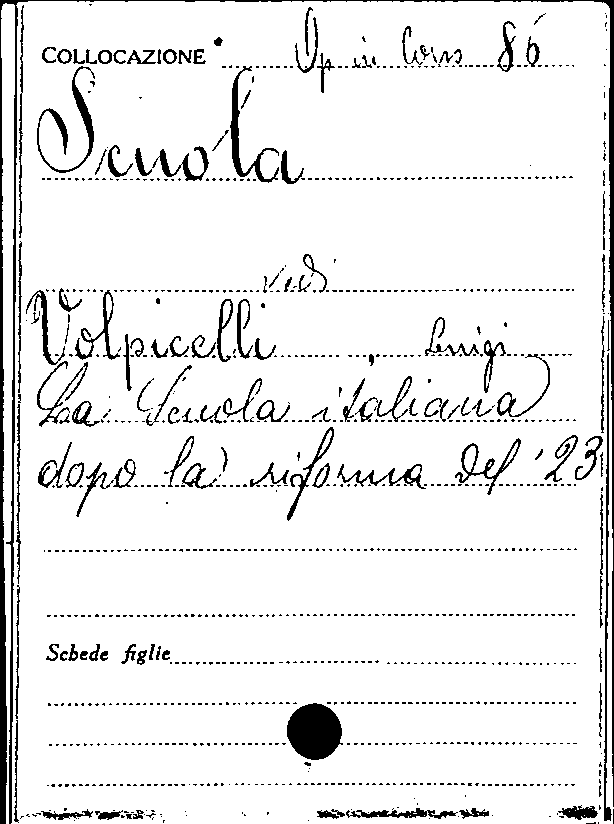 COLLOCAZIONE Op in Cons 86
Scuola
vedi
Volpicelli, Luigi
La Scuola italiana
dopo la riforma del '23
Schede figlie